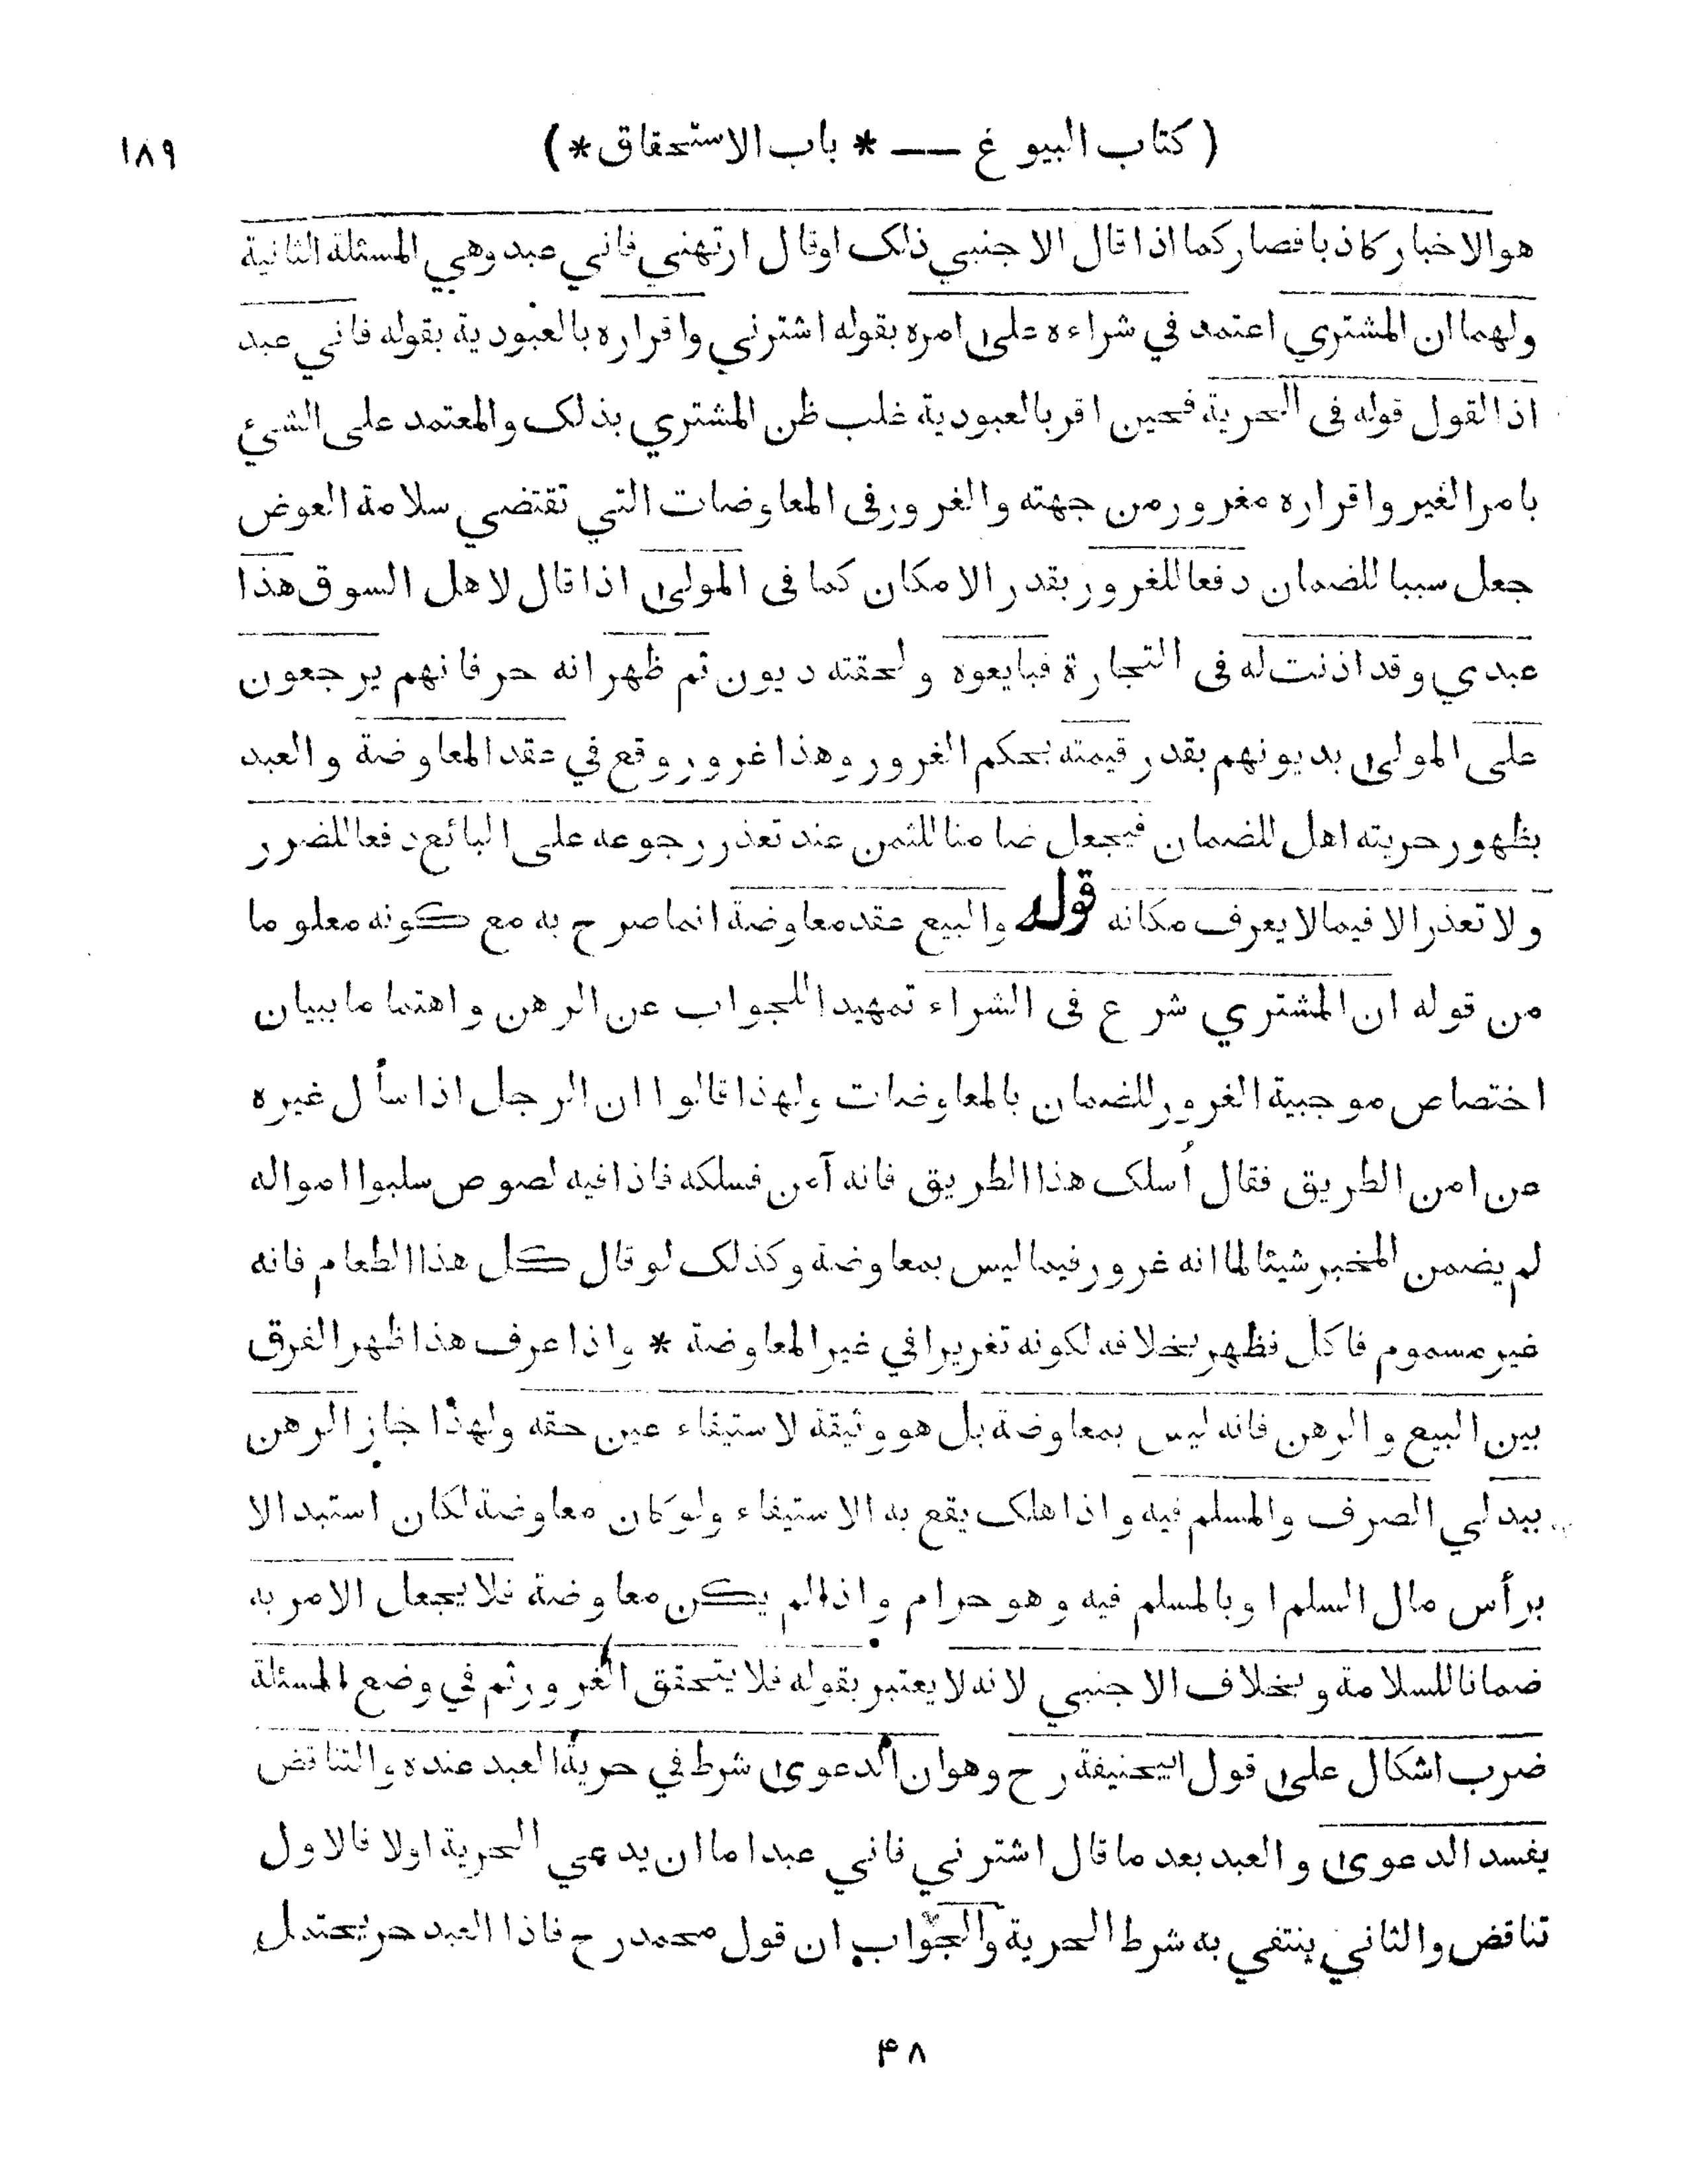 ( كتاب البيوع — * باب الاستحقاق * ) ١٨٩
هو الاخبار كاذبا فصار كما اذا قال الاجنبي ذلك او قال ارتهني فاني عبد وهي المسئلة الثانية
ولهما ان المشتري اعتمد في شراءه على امره بقوله اشترني واقراره بالعبودية بقوله فاني عبد
اذ القول قوله فى الحرية فحين اقر بالعبودية غلب ظن المشتري بذلك والمعتمد على الشئ
بامر الغير واقراره مغرور من جهته والغرور فى المعاوضات التي تقتضي سلامة العوض
جعل سببا للضمان دفعا للغرور بقدر الامكان كما فى المولى اذا قال لاهل السوق هذا
عبدي وقد اذنت له فى التجارة فبايعوه ولحقته ديون ثم ظهر انه حر فانهم يرجعون
على المولى بديونهم بقدر قيمته بحكم الغرور وهذا غرور وقع في عقد المعاوضة والعبد
بظهور حريته اهل للضمان فيجعل ضامنا للثمن عند تعذر رجوعه على البائع دفعا للضرر
ولا تعذر الا فيما لا يعرف مكانه قوله والبيع عقد معاوضة انما صرح به مع كونه معلوما
من قوله ان المشتري شرع فى الشراء تمهيدا للجواب عن الرهن واهتماما ببيان
اختصاص موجبية الغرور للضمان بالمعاوضات ولهذا قالوا ان الرجل اذا سأل غيره
عن امن الطريق فقال أسلك هذا الطريق فانه آمن فسلكه فاذا فيه لصوص سلبوا امواله
لم يضمن المخبر شيئا لما انه غرور فيما ليس بمعاوضة وكذلك لو قال كل هذا الطعام فانه
غير مسموم فاكل فظهر بخلافه لكونه تغريرا في غير المعاوضة * واذا عرف هذا ظهر الفرق
بين البيع والرهن فانه ليس بمعاوضة بل هو وثيقة لاستيفاء عين حقه ولهذا جاز الرهن
ببدلي الصرف والمسلم فيه واذا هلك يقع به الاستيفاء ولو كان معاوضة لكان استبدالا
برأس مال السلم او بالمسلم فيه وهو حرام واذا لم يكن معاوضة فلا يجعل الامر به
ضمانا للسلامة وبخلاف الاجنبي لانه لا يعتبر بقوله فلا يتحقق الغرور ثم في وضع المسئلة
ضرب اشكال على قول ابيحنيفة رح وهو ان الدعوى شرط في حرية العبد عنده والتناقض
يفسد الدعوى والعبد بعد ما قال اشترني فاني عبد اما ان يدعي الحرية اولا فالاول
تناقض والثاني ينتفي به شرط الحرية والجواب ان قول محمد رح فاذا العبد حر يحتمل
٤٨